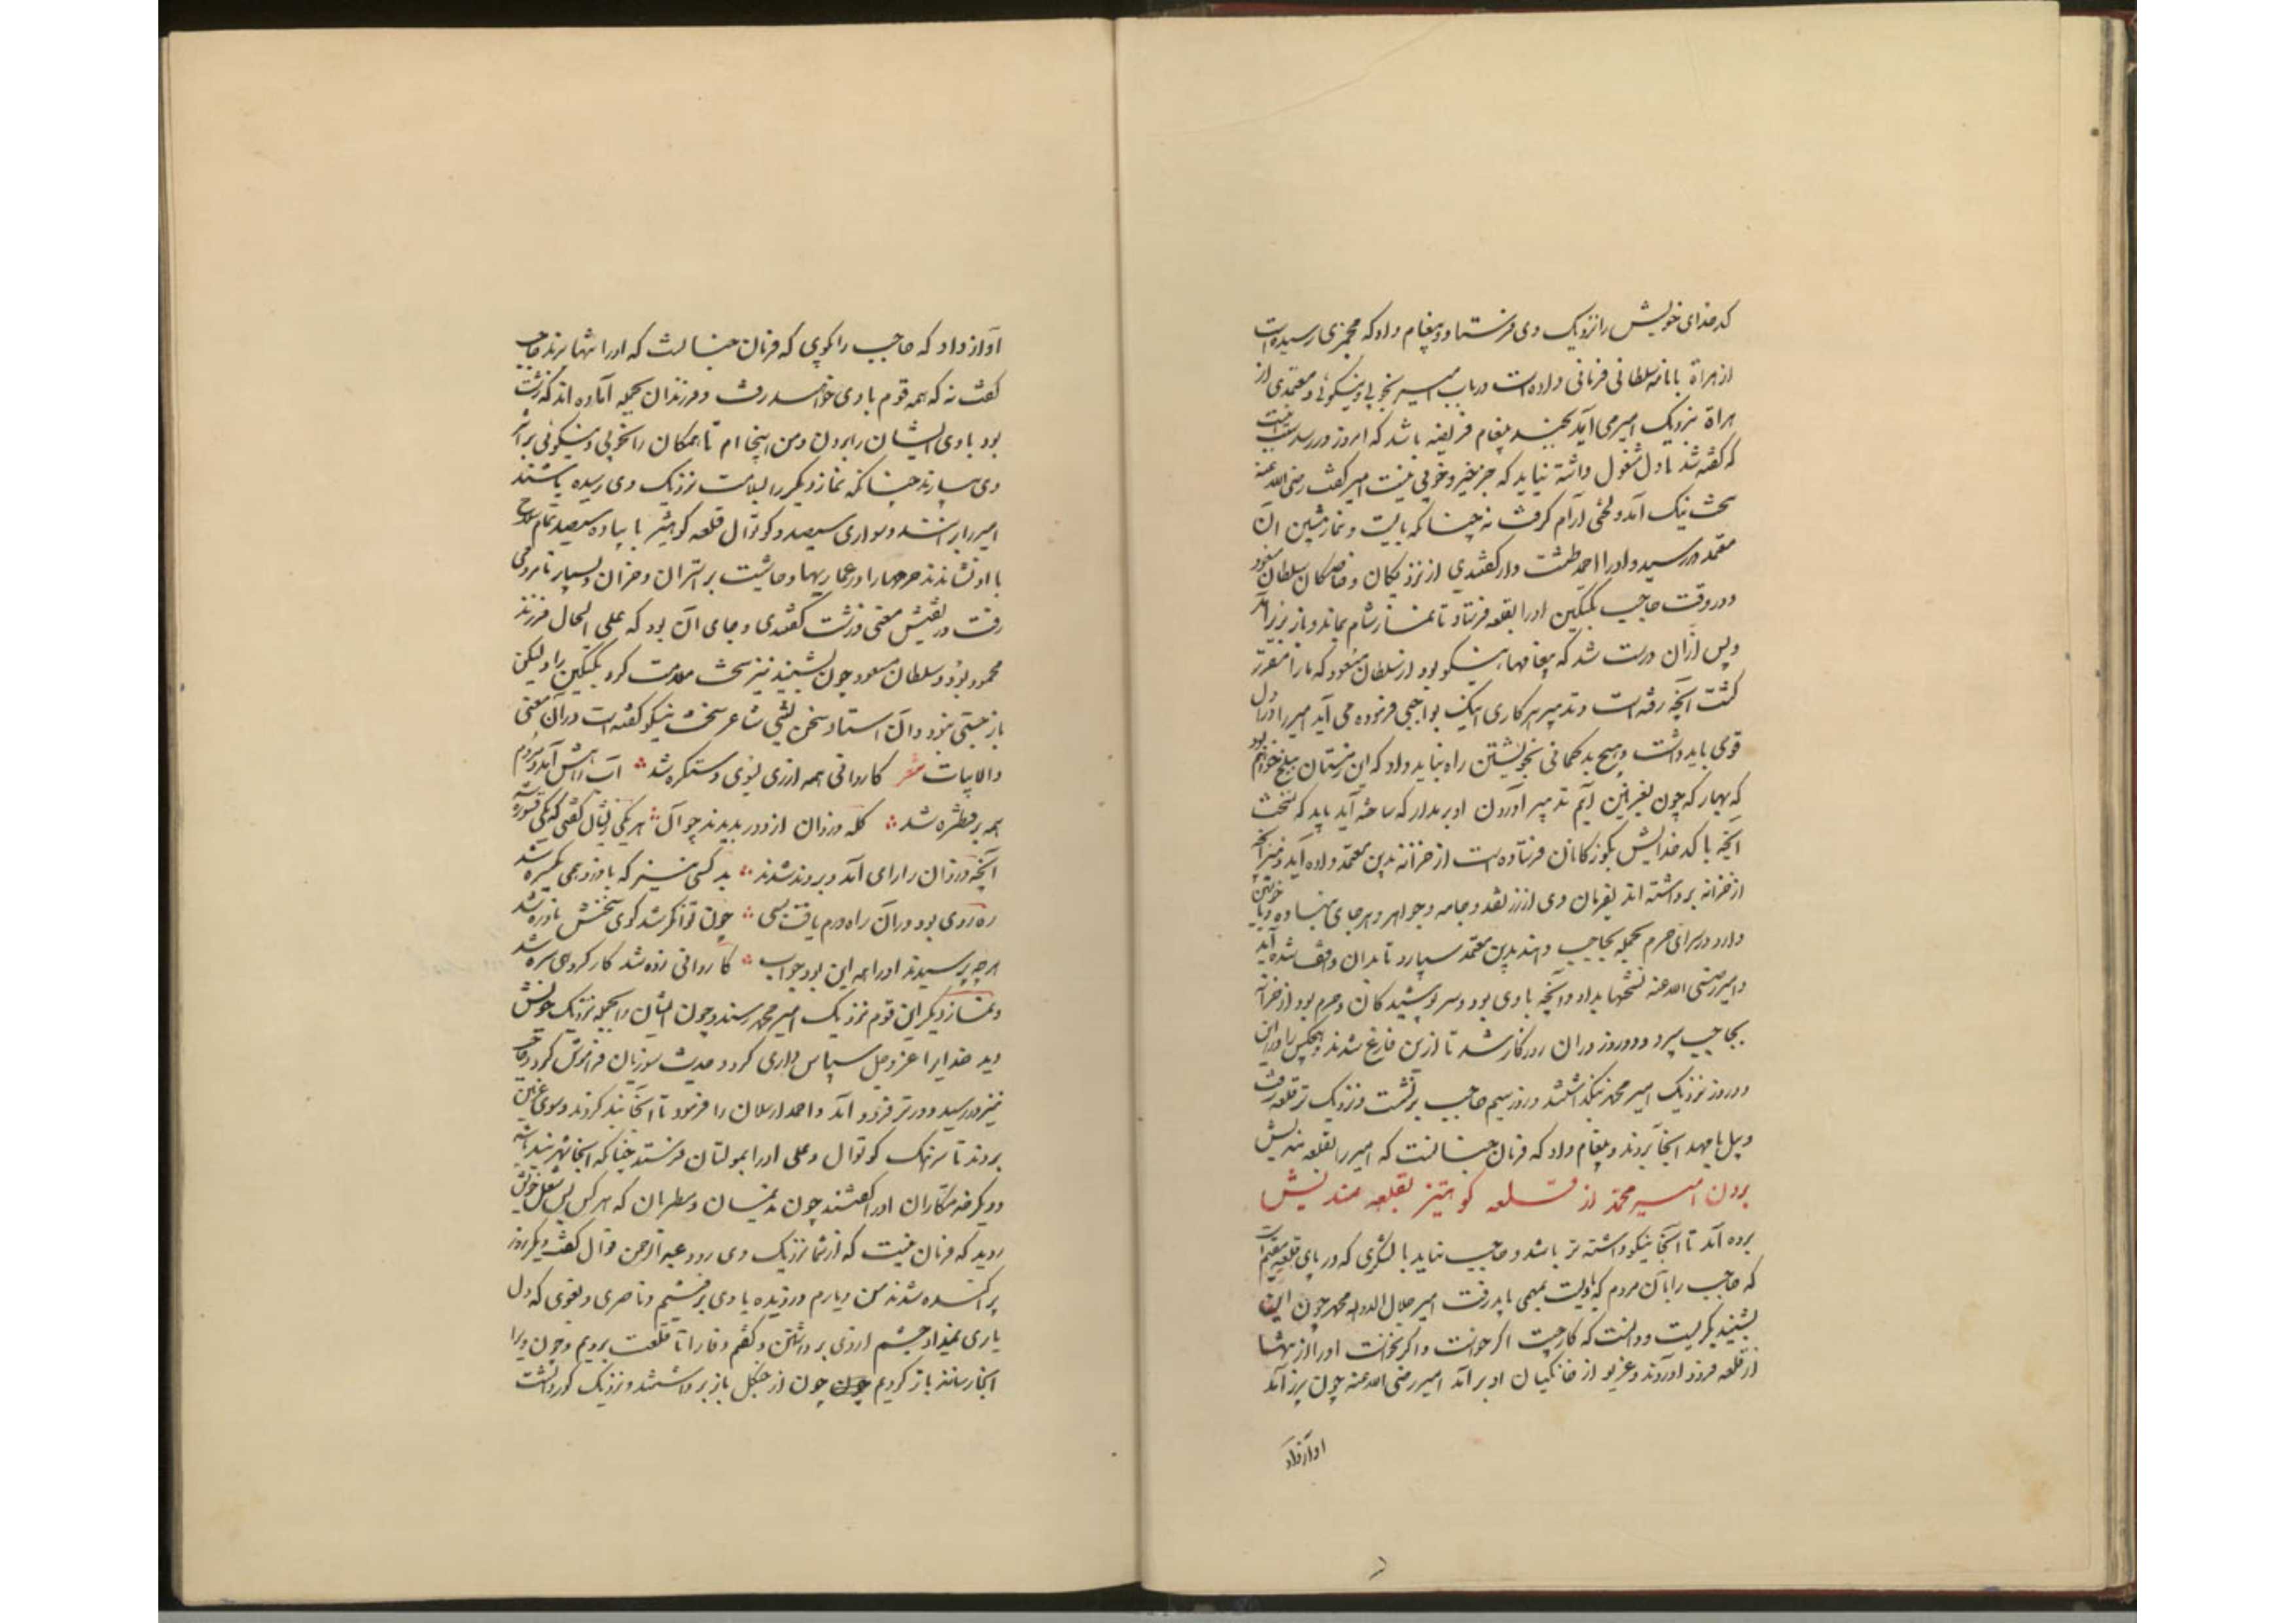 کدخدای خویش را نزدیک وی فرستاد و پیغام داد که مجمزی رسیده است
از هراة با نامه سلطانی فرمانی داده است در باب امیر بخوبی و نیکوئی و معتمدی از
هراة نزدیک امیر می آید بچند پیغام فریضه باشد که امروز در رسد
که گفته شد تا دل مشغول داشته نیاید که جز خیر و خوبی نیست امیر گفت رضی الله عنه
سخت نیک آمد و لختی آرام گرفت نه چنانکه بایست و نماز پشین آن
معتمد در رسید و او را احمد طشت دار گفتندی از نزدیکان و خاصگان سلطان مسعود
و در وقت حاجب بکتکین او را بقلعه فرستاد تا نماز شام بماند و باز بزیر آمد
و پس از آن درست شد که پیغامها نیکو بود از سلطان مسعود که ما را مقرر
گشت آنچه رفته است و تدبیر هر کاری اینک بواجبی فرموده می آید امیر را دل
قوی باید داشت و هیچ بدگمانی بخویشتن راه نباید داد که این زمستان ببلخ خواهم بود
که بهار که چون بغزنین آیم تدبیر آوردن او بر مدار که ساخته آید باید که نسخت
آنچه با کدخدایش بکوزکانان فرستاده است از خزانه بدین معتمد داده آید و نیز آنچه
از خزانه برداشته اند بفرمان وی از زر نقد و جامه و جواهر و هر جای نهاده و با خویشتن
دارد در سرای حرم بجمله بحاجب دهند بدین معتمد سپارد تا بدان واقف شده آید
و امیر رضی الله عنه نسختها بداد و آنچه با وی بود و سر پوشیدگان و حرم بود از خزانه
بحاجب سپرد و دو روز در آن روزگار شد تا ازین فارغ شدند و هیچکس را درین
دو روز نزدیک امیر محمد نگذاشتند و روز سیم حاجب برنشست و نزدیک تر قلعه رفت
و پیل با مهد آنجا بردند و پیغام داد که فرمان چنانست که امیر را بقلعه مندیش
بردن امیر محمد از قلعه کوهتیز بقلعه مندیش
برده آید تا آنجا نیکو داشته تر باشد و حاجب بیاید با لشگری که در پای قلعه مقیم است
که حاجب را با آن مردم که با ویست بمهمی باید رفت امیر جلال الدوله محمد چون این
بشنید بگریست و دانست که کار چیست اگر خواست و اگر نخواست او را از تنها
از قلعه فرود آوردند و غریو از خانگیان او برآمد امیر رضی الله عنه چون بزیر آمد
آواز داد
آواز داد که حاجب را گوی که فرمان چنانست که او را تنها برند حاجب
گفت نه که همه قوم با وی خواهند رفت و فرزندان بجمله آماده اند که زشت
بود با وی ایشان را بردن و من اینجا ام تا همگان را بخوبی و نیکوئی بر اثر
وی بیارند چنانکه نماز دیگر را بسلامت نزدیک وی رسیده باشند
امیر را براندند و سواری سیصد و کوتوال قلعه کوهتیز با پیاده سیصد تمام سلاح
با او نشاندند حرمها را در عماریها و حاشیت بر استران و خران و بسیار نامردمی
رفت در تفتیش معنی و زشت گفتندی و جای آن بود که علی الحال فرزند
محمود بود و سلطان مسعود چون بشنید نیز سخت ملامت کرد بکتکین را ولیکن
باز جستی نبود و آن استاد سخن لبیبی شاعر سخت نیکو گفته است در آن معنی
والابیات شعر کاروانی همه از ری بسوی دستکره شد آب پیش آمد و مردم
همه بر قنطره شد گله دزدان از دور بدیدند چو آن هر یکی زیشان گفتی که یکی قسوره شد
آنچه دزدان را رای آمد و بردند شدند بد کسی نیز که با دزد همی یکسره شد
ره روی بود در آن راه درم یافت بسی چون توانگر شد گوی سخنش نادره شد
هرچه پرسیدند او را همه این بود جواب کاروانی زده شد کار گروهی سره شد
و نماز دیگر این قوم نزدیک امیر محمد رسیدند و چون ایشان را بجمله نزدیک خویش
دید خدایرا عز و جل سپاس داری کرد و حدیث سوزیان فراموش کرد و حاجب
نیز در رسید و دورتر فرود آمد و احمد ارسلان را فرمود تا آنجا بند کردند و سوی غزنین
بردند تا سرهنک کوتوال و علی او را بمولتان فرستد چنانکه آنجا شهربند باشد
و دیگر خدمتکاران او را گفتند چون ندیمان و مطربان که هر کس پس شغل خویش
روید که فرمان نیست که از شما نزدیک وی رود عبدالرحمن قوال گفت دیگر روز
پراکنده شدند من و یارم دزدیده با وی برفتیم و ناصری و بغوی که دل
یاری نمیداد چشم از وی برداشتن و گفتم وفا را تا قلعت برویم و چون ویرا
آنجا رسانند باز گردیم چون چون از جنکل باز برداشتند و نزدیک کور والشت